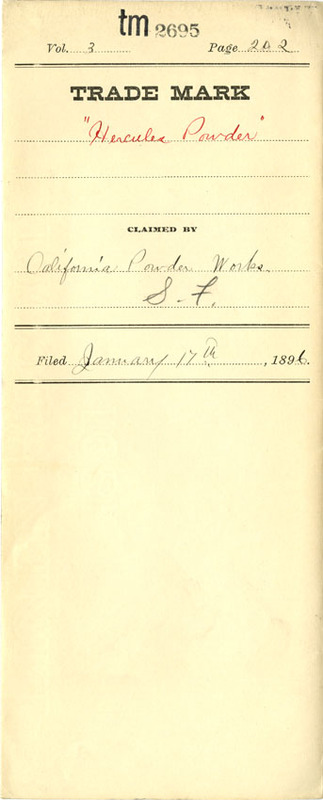 tm 2695
Vol. 3 Page 202
TRADE MARK
"Hercules Powder"
CLAIMED BY
California Powder Works
S. F.
Filed January 17th, 1896.